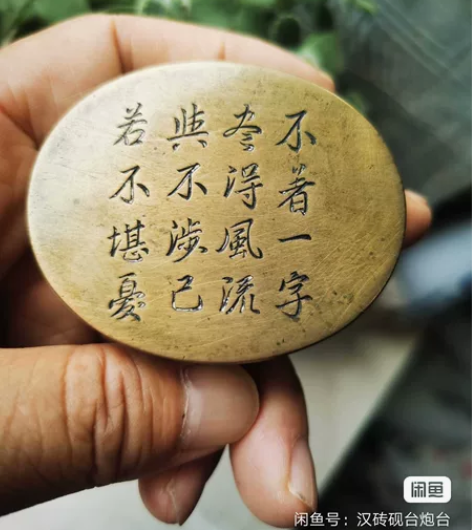 不著一字
盡得風流
與不涉己
若不堪憂
闲鱼
闲鱼号：汉砖砚台炮台